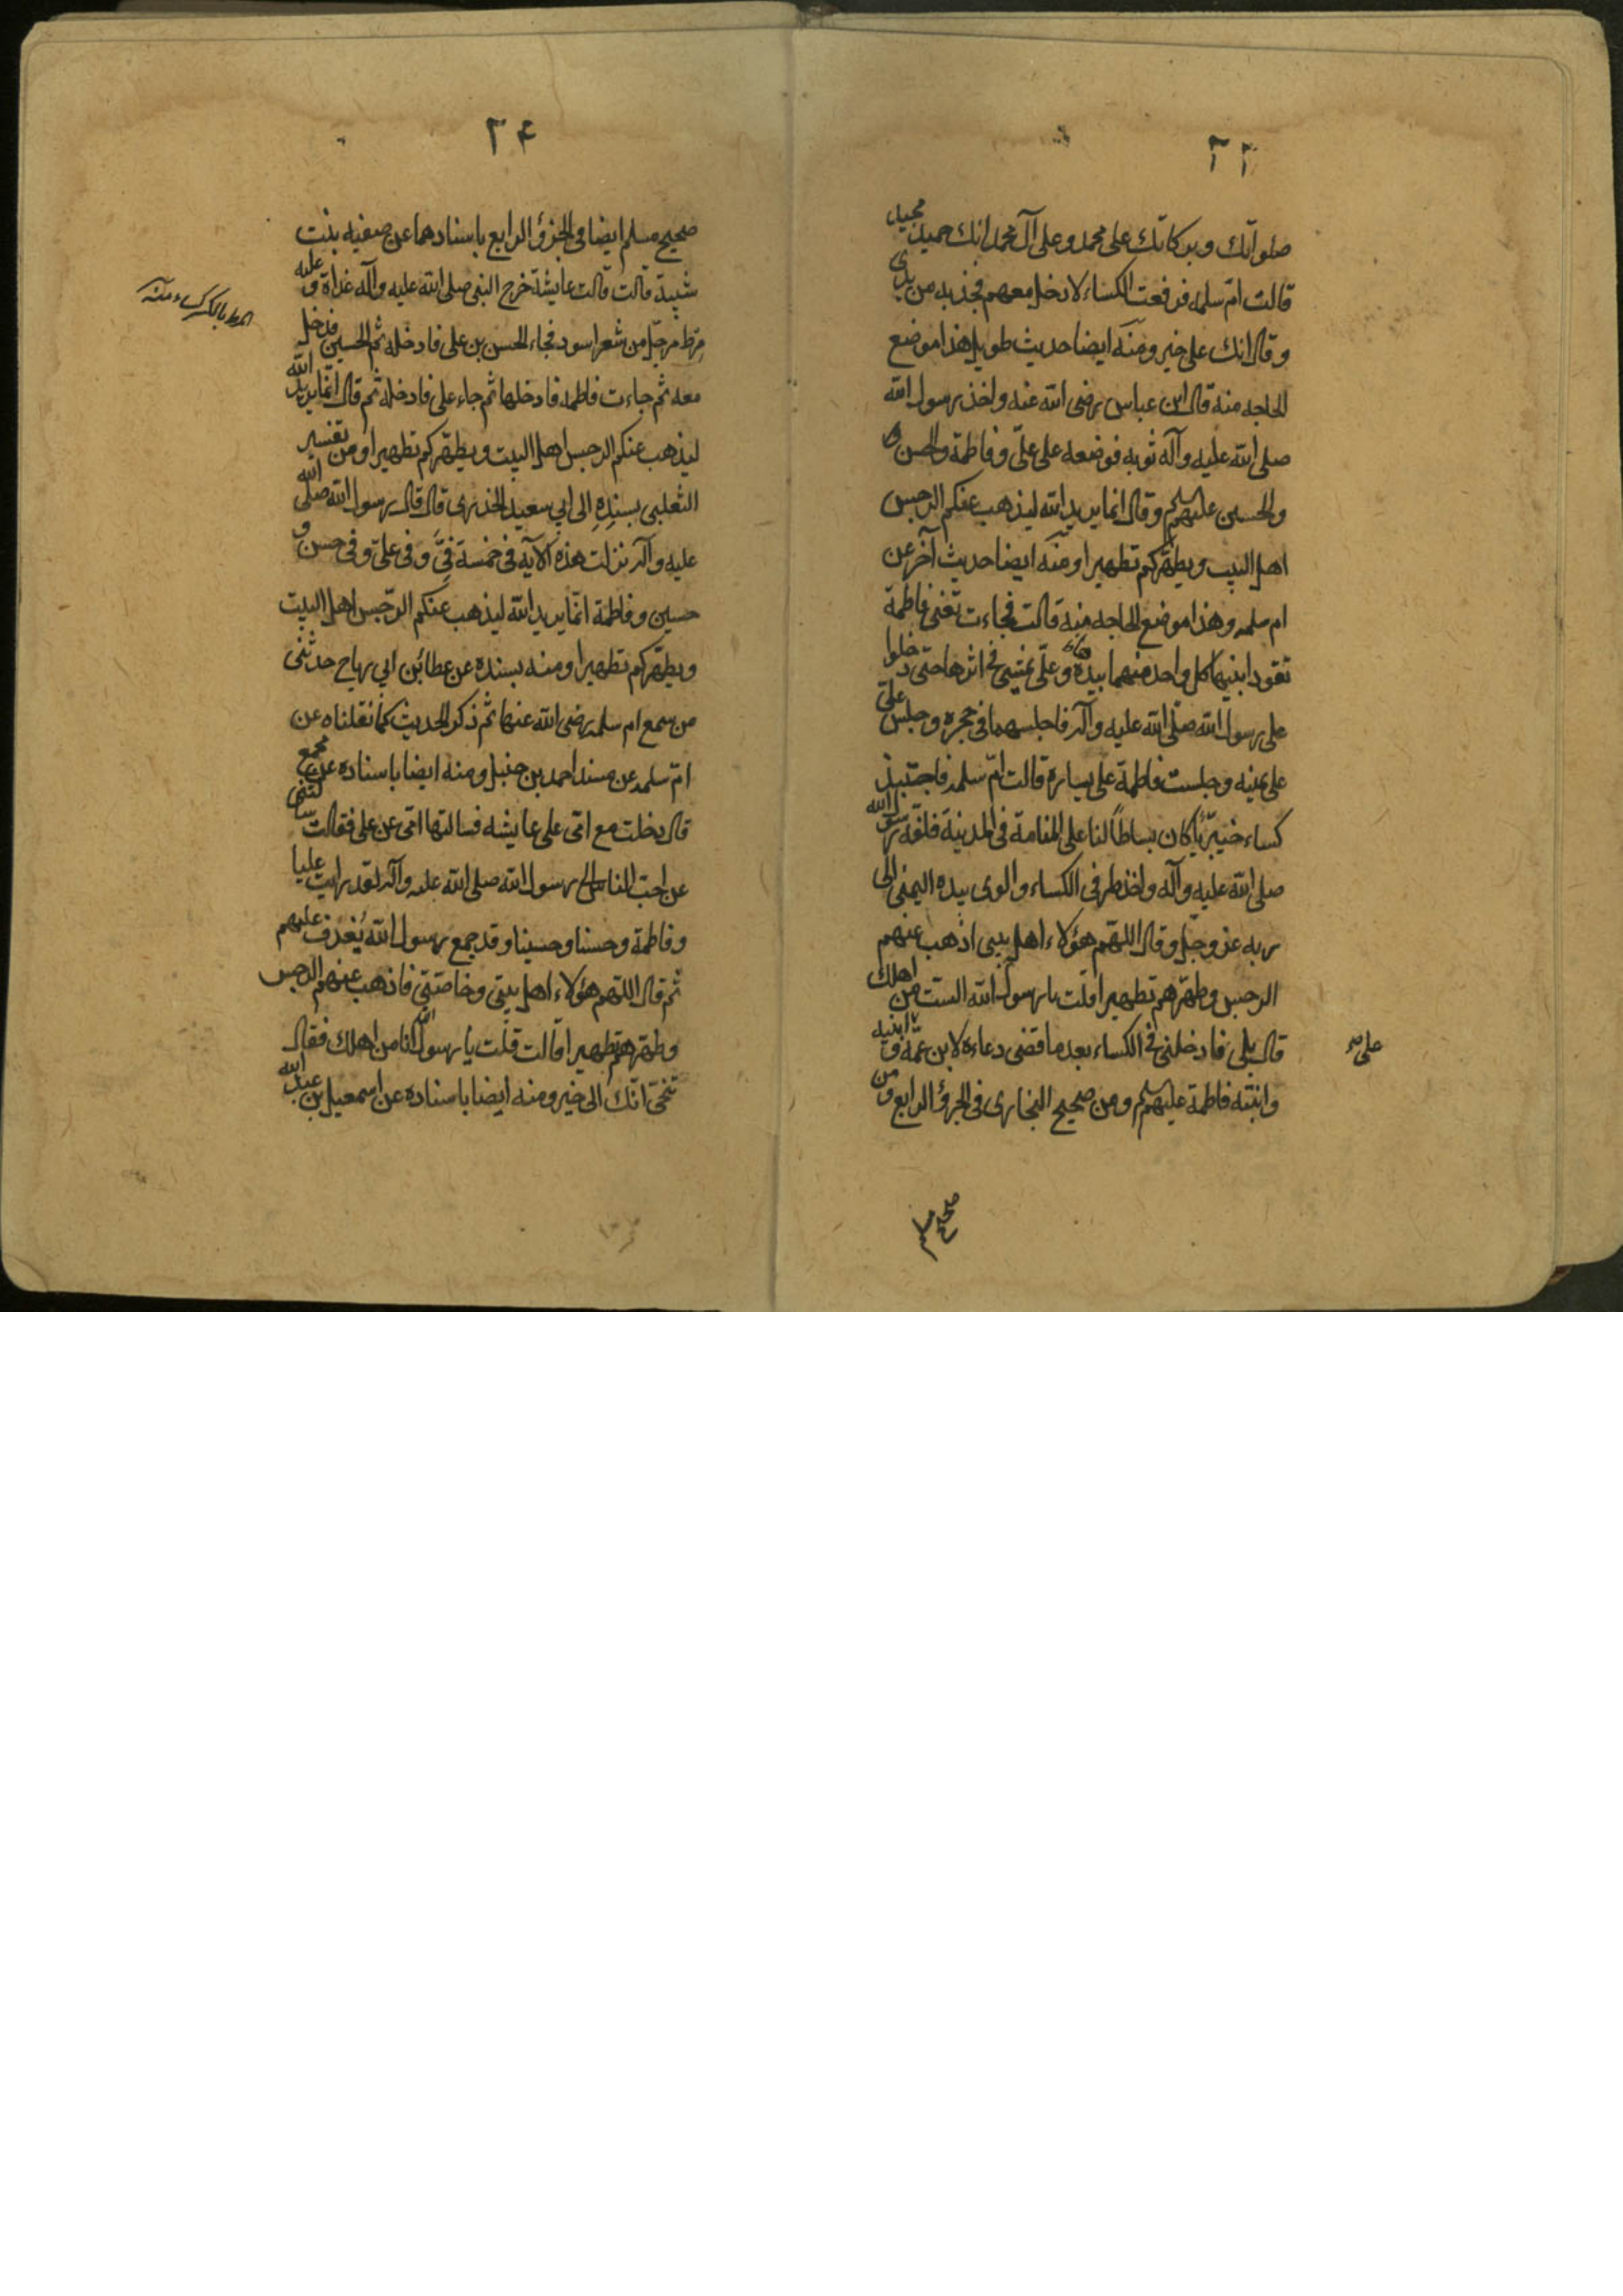 ٢٣
صلواتك وبركاتك على محمد وعلى آل محمد انك حميد مجيد
قالت ام سلمه فرفعت الكساء لادخل معهم فجذبه من يدى
وقال انك على خير ومنه ايضا حديث طويل هذا موضع
الحاجه منه قال ابن عباس رضى الله عنه واخذ رسول الله
صلى الله عليه وآله ثوبه فوضعه على علىّ وفاطمة والحسن و
والحسين عليهم السلم وقال انما يريد الله ليذهب عنكم الرجس
اهل البيت ويطهّركم تطهيرا ومنه ايضا حديث آخر عن
ام سلمه وهذا موضع الحاجه منه قالت فجاءت تعنى فاطمة
تقود ابنيها كل واحد منهما بيده وعلىّ يمشى فى اثرها حتى دخلوا
على رسول الله صلّى الله عليه وآله فاجلسهما فى حجره وجلس علىّ
على يمينه وجلست فاطمة على يساره قالت امّ سلمه فاجتبذ
كساء خيبريّا كان بساطاً لنا على المنامة فى المدينة فلفّه رسول الله
صلى الله عليه وآله واخذ طرفى الكساء والوى بيده اليمنى الى
ربه عز وجلّ وقال اللهّم هؤلاء اهل بيتى اذهب عنهم
الرجس وطهّرهم تطهيرا قلت يا رسول الله الست من اهلك
قال بلى فادخلنى فى الكساء بعد ما قضى دعاءه لابن عمّه و ابنيه
وابنته فاطمة عليهم السلم ومن صحيح البخارى فى الجزؤ الرابع و من
على
صحيح مسلم
٢٤
صحيح مسلم ايضا فى الجزؤ الرابع باسنادهما عن صفيه بنت
شيبة قالت قالت عايشة خرج النبى صلى الله عليه وآله غداة و عليه
مِرط مرجّل من شعر اسود فجاء الحسن بن على فادخله ثم الحسين فدخل
معه ثم جاءت فاطمه فادخلها ثم جاء على فادخله ثم قال انّما يريد الله
ليذهب عنكم الرجس اهل البيت ويطهّركم تطهيرا ومن تفسير
الثعلبى بسنده الى ابي سعيد الخذرى قال قال رسول الله صلى الله
عليه وآله نزلت هذه الآيه فى خمسة فِىَّ وفى علىّ وفى حسن و
حسين وفاطمة انّما يريد الله ليذهب عنكم الرّجس اهل البيت
ويطهّركم تطهيرا ومنه بسنده عن عطا بن ابي رباح حدثنى
من سمع ام سلمه رضى الله عنها ثم ذكر الحديث كما نقلناه عن
امّ سلمه عن مسند احمد بن حنبل ومنه ايضا باسناده عن مجمع
قال دخلت مع امّى على عايشه فسالتها امّى عن على فقالت سالتنى
عن احبّ الناس الى رسول الله صلى الله عليه وآله لقد رايت عليا
وفاطمة وحسنا وحسينا وقد جمع رسول الله يُغذف عليهم
ثم قال اللّهم هؤلاء اهل بيتى وخاصّتى فاذهب عنهم الرجس
وطهّرهم تطهيرا قالت قلت يا رسول الله انا من اهلك فقال
تنحّى انّك الى خير ومنه ايضا باسناده عن اسمعيل بن عبد الله
المرط بالكسر كساء منه